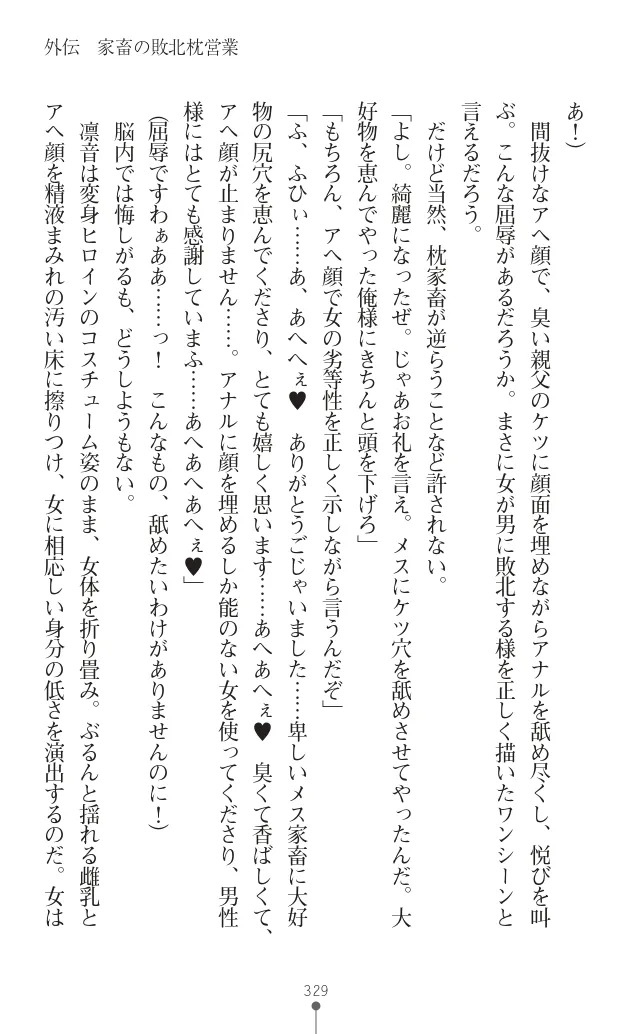 外伝　家畜の敗北枕営業
あ！）
　間抜けなアヘ顔で、臭い親父のケツに顔面を埋めながらアナルを舐め尽くし、悦びを叫
ぶ。こんな屈辱があるだろうか。まさに女が男に敗北する様を正しく描いたワンシーンと
言えるだろう。
　だけど当然、枕家畜が逆らうことなど許されない。
「よし。綺麗になったぜ。じゃあお礼を言え。メスにケツ穴を舐めさせてやったんだ。大
好物を恵んでやった俺様にきちんと頭を下げろ」
「もちろん、アヘ顔で女の劣等性を正しく示しながら言うんだぞ」
「ふ、ふひぃ……あ、あへへぇ♥　ありがとうごじゃいました……卑しいメス家畜に大好
物の尻穴を恵んでくださり、とても嬉しく思います……あへあへぇ♥　臭くて香ばしくて、
アヘ顔が止まりません……。アナルに顔を埋めるしか能のない女を使ってくださり、男性
様にはとても感謝していまふ……あへあへあへぇ♥」
（屈辱ですわぁああ……っ！　こんなもの、舐めたいわけがありませんのに！）
　脳内では悔しがるも、どうしようもない。
　凛音は変身ヒロインのコスチューム姿のまま、女体を折り畳み。ぶるんと揺れる雌乳と
アヘ顔を精液まみれの汚い床に擦りつけ、女に相応しい身分の低さを演出するのだ。女は
329